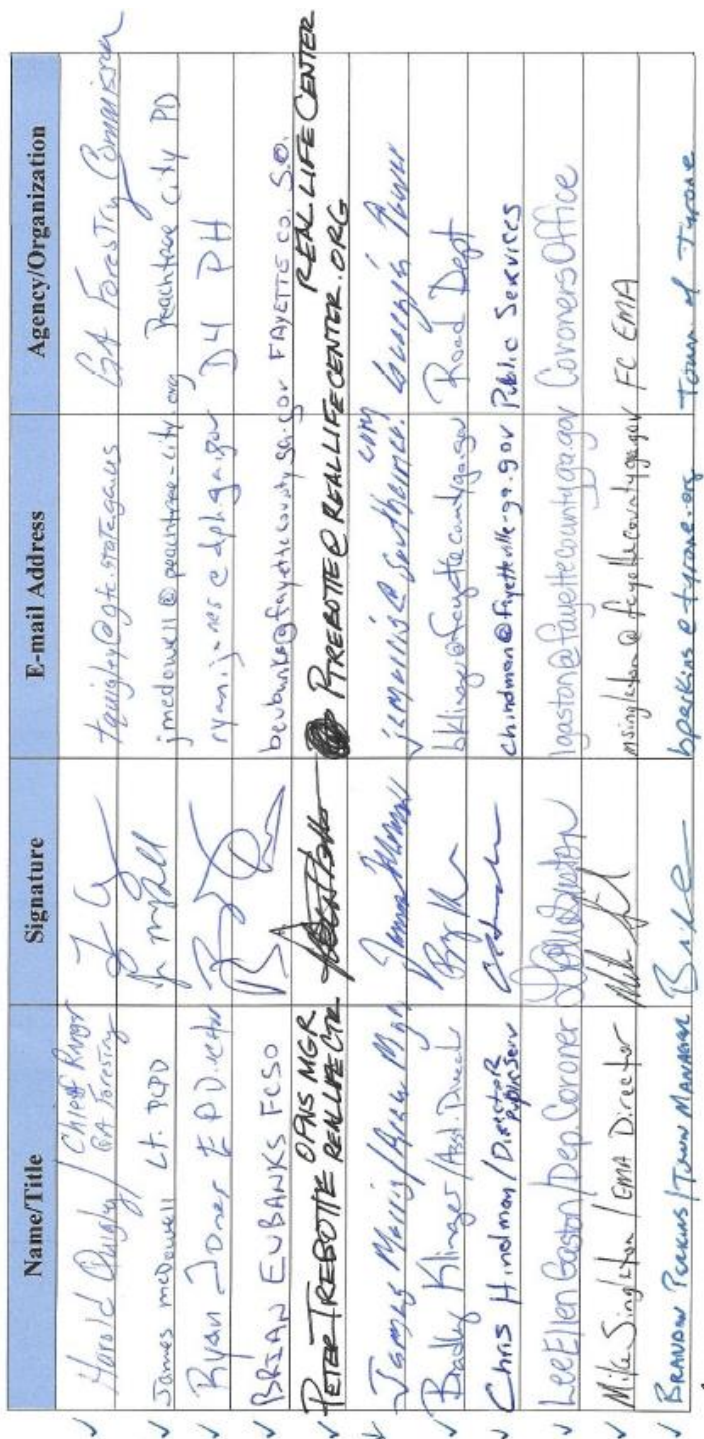 Name/Title Signature E-mail Address Agency/Organization
Harold Quigley / Chief Ranger GA Forestry tquigley@gfc.state.ga.us GA Forestry Commission
James mcDowell Lt. PCPD jmcdowell@peachtree-city.org Peachtree City PD
Ryan Jones EP Director ryan.jones@dph.ga.gov D4 PH
BRIAN EUBANKS FCSO beubanks@fayettecountyga.gov FAYETTE CO. S.O.
PETER TREBOTTE OPNS MGR REAL LIFE CTR PTREBOTTE@REALLIFECENTER.ORG REAL LIFE CENTER
James / Area Mgr @southernco.com Georgia Power
Bradley Klinger / Asst. Director bklinger@fayettecountyga.gov Road Dept
Chris Hindman / Director Public Serv chindman@fayetteville-ga.gov Public Services
LeeEllen Gaston / Dep. Coroner lgaston@fayettecountyga.gov Coroners Office
Mike Singleton / EMA Director msingleton@fayettecountyga.gov FC EMA
BRANDON PERKINS / TOWN MANAGER bperkins@tyrone.org Town of Tyrone